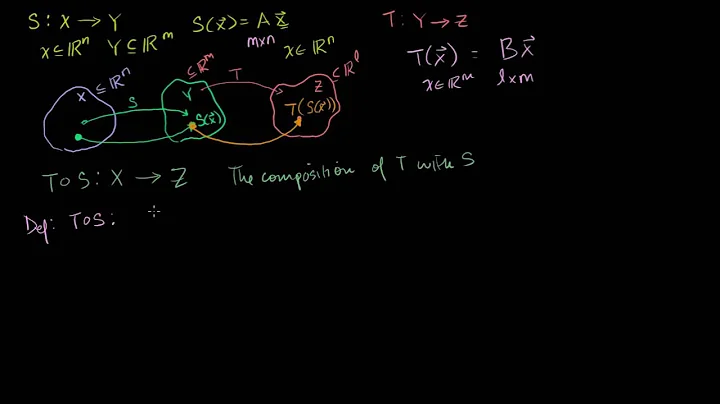 S : X → Y S(x⃗) = A x⃗ T : Y → Z
X ⊆ ℝⁿ Y ⊆ ℝᵐ m×n x ∈ ℝⁿ T(x⃗) = B x⃗
x ∈ ℝᵐ l×m
X ⊆ ℝⁿ S Y ⊆ ℝᵐ T Z ⊆ ℝˡ
S(x⃗) T(S(x⃗))
T∘S : X → Z The composition of T with S
Def: T∘S :